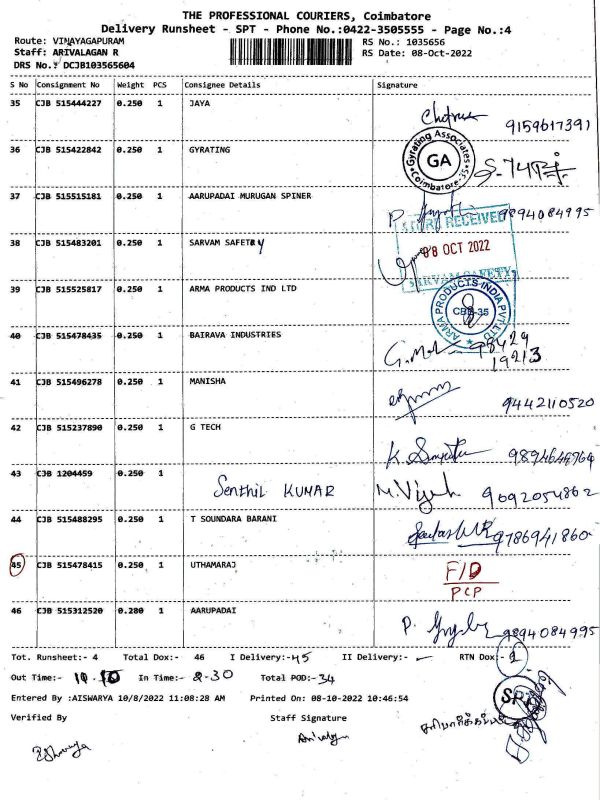 THE PROFESSIONAL COURIERS, Coimbatore
Delivery Runsheet - SPT - Phone No.:0422-3505555 - Page No.:4
Route: VINAYAGAPURAM
RS No.: 1035656
Staff: ARIVALAGAN R
RS Date: 08-Oct-2022
DRS No.: DCJB103565604
S No Consignment No Weight PCS Consignee Details Signature
35 CJB 515444227 0.250 1 JAYA
9159617391
36 CJB 515422842 0.250 1 GYRATING
Gyrating Associates
GA
Coimbatore-35
37 CJB 515515181 0.250 1 AARUPADAI MURUGAN SPINER
9894084995
RECEIVED
38 CJB 515483201 0.250 1 SARVAM SAFETY
08 OCT 2022
SARVAM SAFETY
39 CJB 515525817 0.250 1 ARMA PRODUCTS IND LTD
ARMA PRODUCTS INDIA PVT LTD
CBE-35
40 CJB 515478435 0.250 1 BAIRAVA INDUSTRIES
98429
19213
41 CJB 515496278 0.250 1 MANISHA
9442110520
42 CJB 515237890 0.250 1 G TECH
43 CJB 1204459 0.250 1 Senthil KUMAR M. Vijesh 9092054862
44 CJB 515488295 0.250 1 T SOUNDARA BARANI
9786941860
45 CJB 515478415 0.250 1 UTHAMARAJ F/D
PCP
46 CJB 515312520 0.280 1 AARUPADAI
9894084995
Tot. Runsheet:- 4 Total Dox:- 46 I Delivery:- 45 II Delivery:- - RTN Dox:- 1
Out Time:- 10.50 In Time:- 2-30 Total POD:- 34
SPT
Entered By :AISWARYA 10/8/2022 11:08:28 AM Printed On: 08-10-2022 10:46:54
Verified By Staff Signature